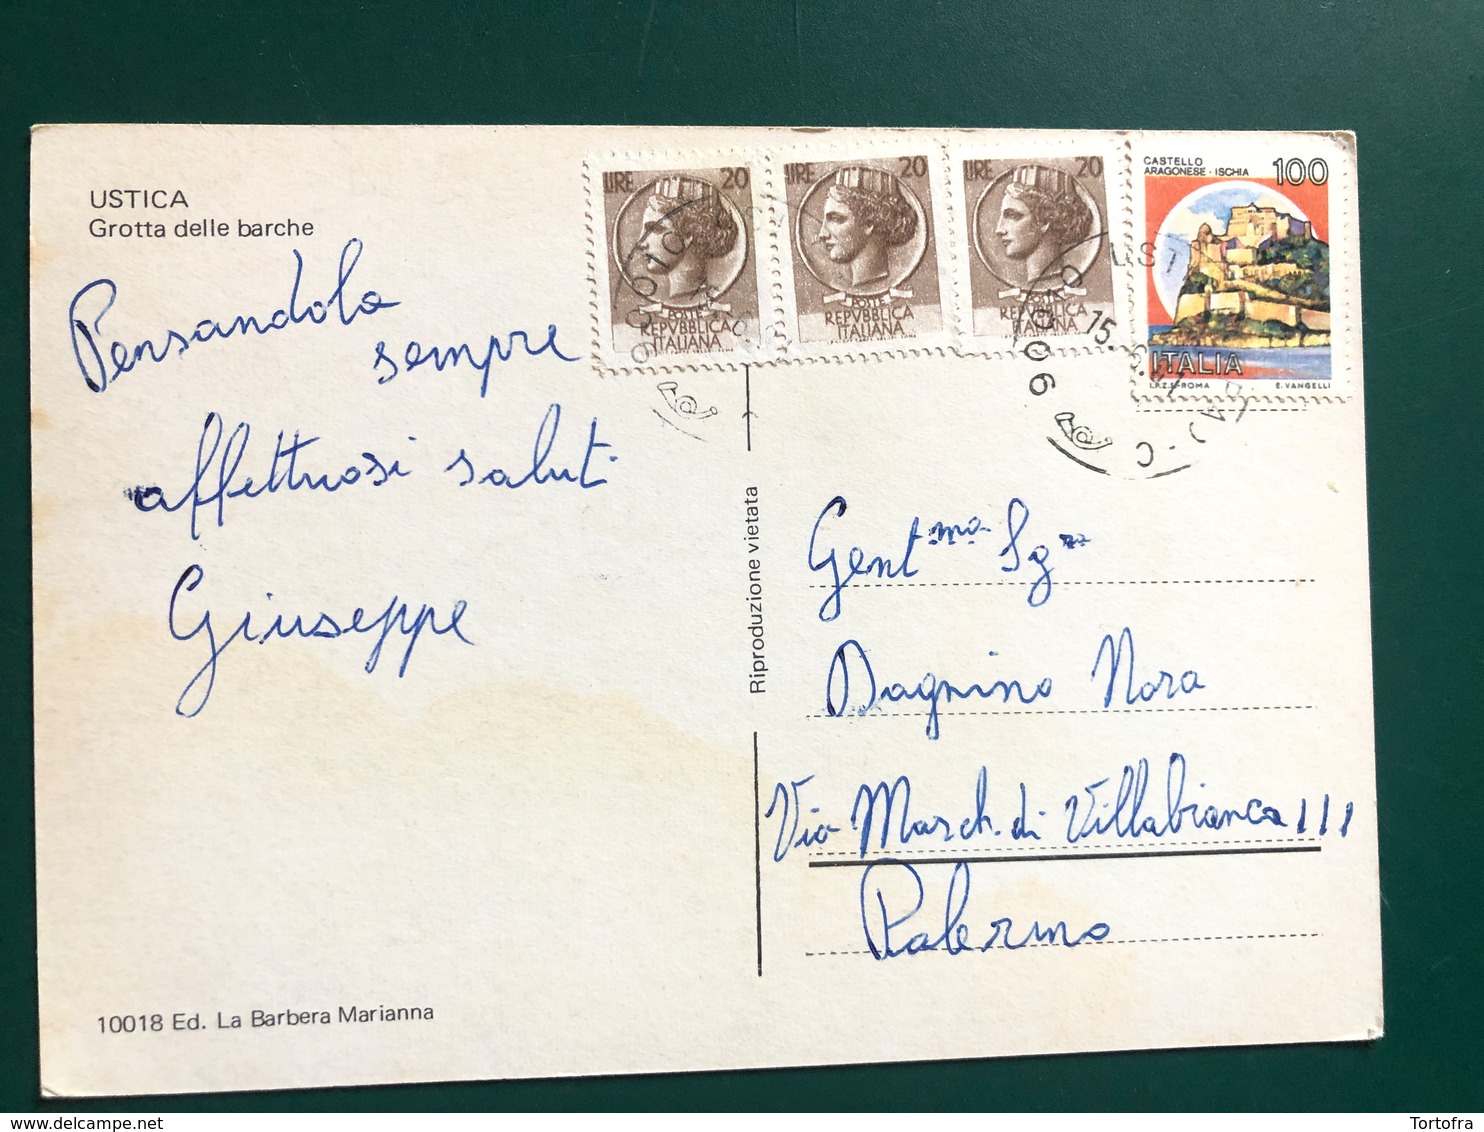 USTICA
Grotta delle barche
Pensandola
sempre
affettuosi saluti
Giuseppe
10018 Ed. La Barbera Marianna
Riproduzione vietata
LIRE 20
POSTE
REPVBBLICA
ITALIANA
LIRE 20
POSTE
REPVBBLICA
ITALIANA
LIRE 20
POSTE
REPVBBLICA
ITALIANA
CASTELLO
ARAGONESE - ISCHIA
100
ITALIA
I.P.Z.S. ROMA E. VANGELLI
90010
90010
15.
Gent.ma Sg.ra
Dagnino Nora
Via March. di Villabianca 111
Palermo
Tortofra